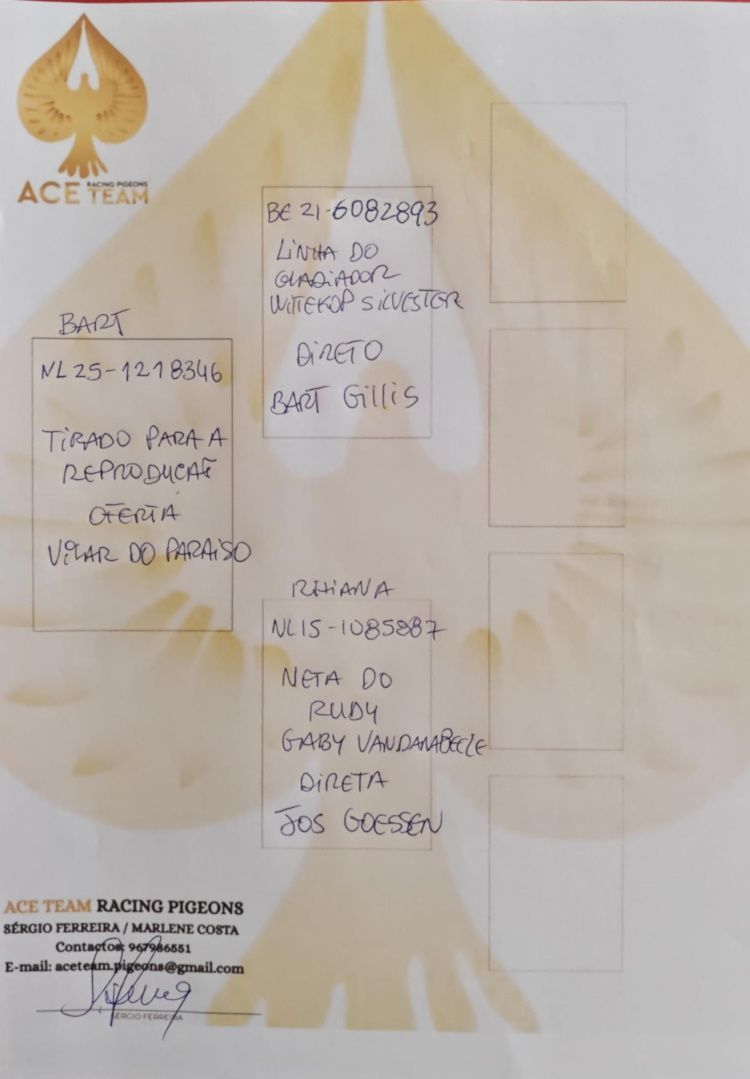 ACE RACING PIGEONS TEAM
BART
NL25-1218346
TIRADO PARA A
REPRODUÇÃO
OFERTA
VILAR DO PARAISO
BE 21-6082893
LINHA DO
GLADIADOR
WITTEKOP SILVESTER
DIRETO
BART Gillis
RHIANA
NL15-1085887
NETA DO
RUDY
GABY VANDANABEELE
DIRETA
JOS GOESSEN
ACE TEAM RACING PIGEONS
SÉRGIO FERREIRA / MARLENE COSTA
Contactos: 967986551
E-mail: aceteam.pigeons@gmail.com
SÉRGIO FERREIRA